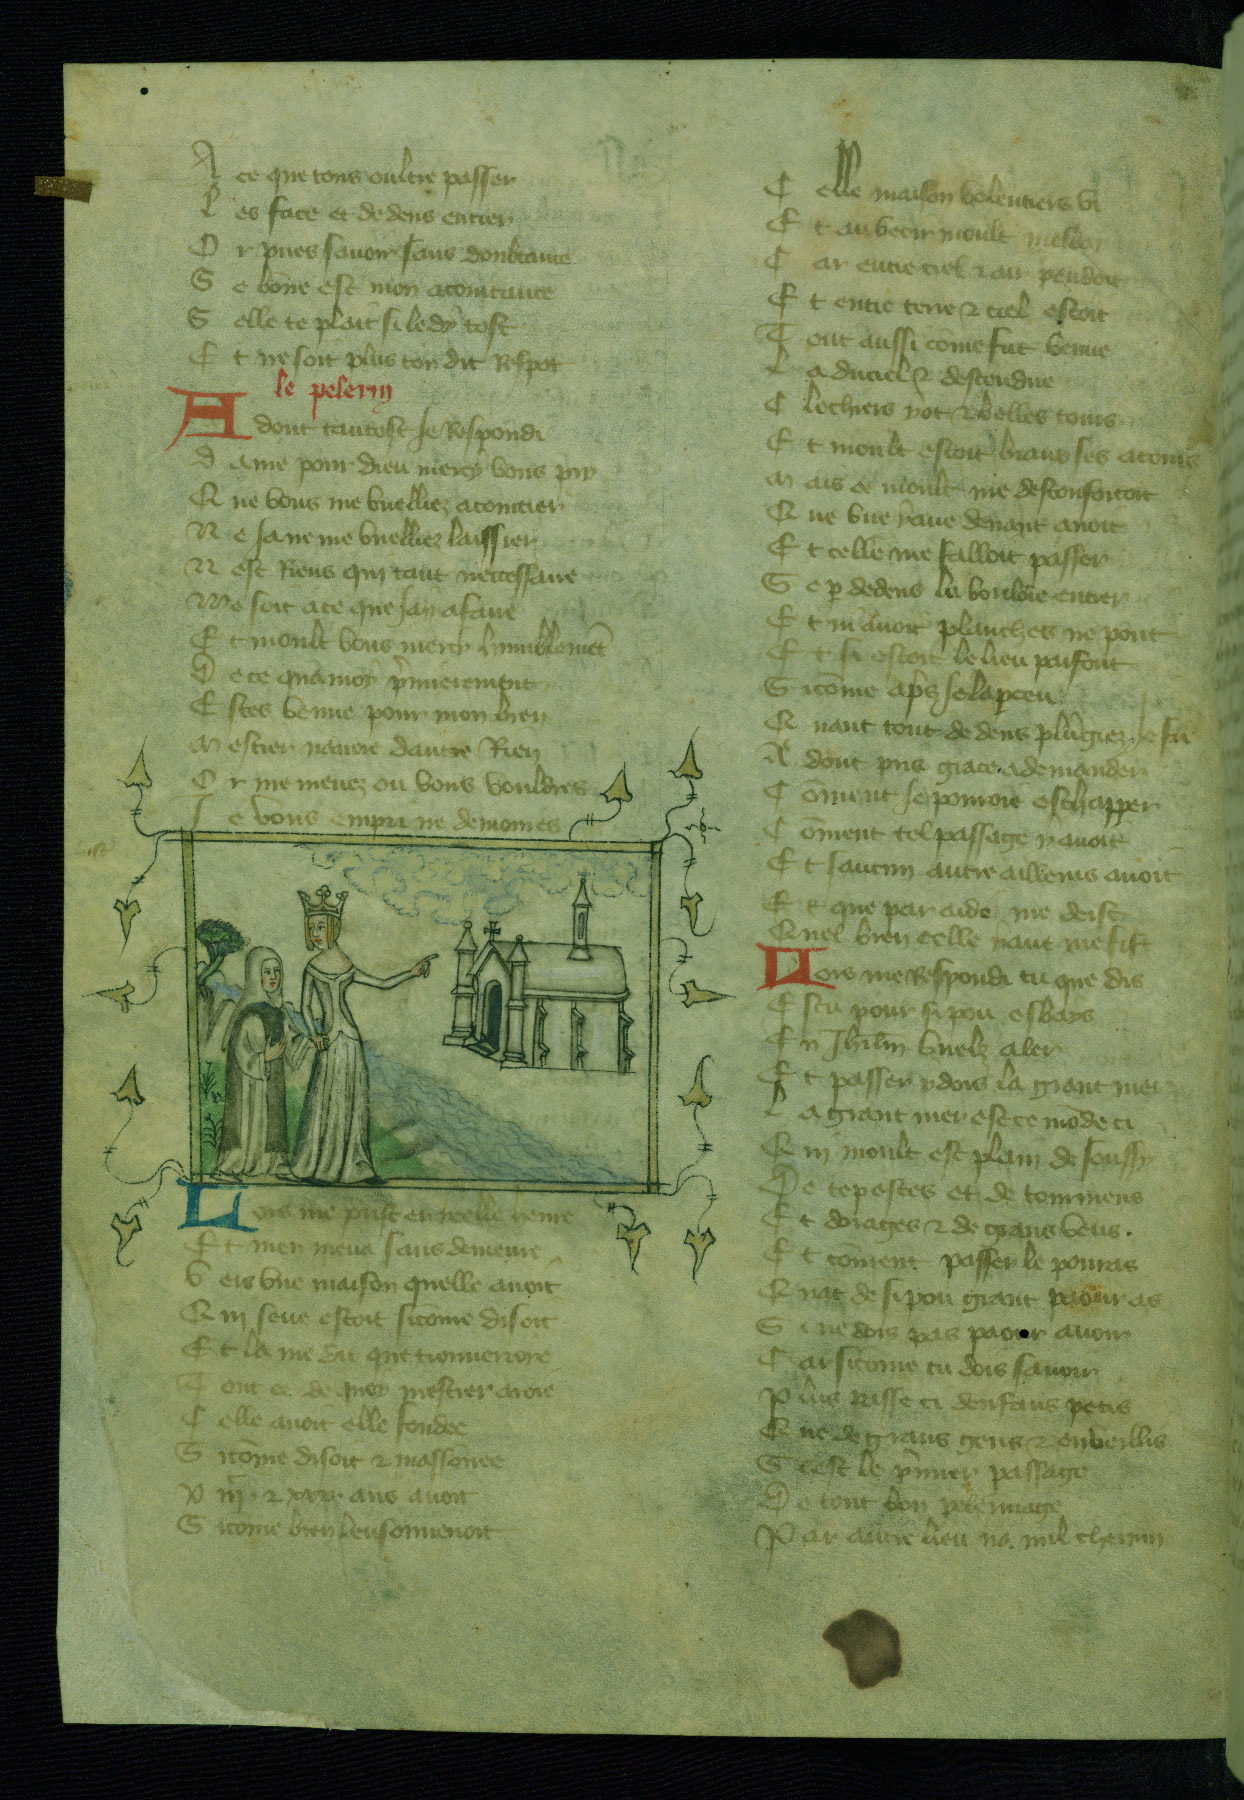 A ce que tous oultre passer
L es face et dedens entrer
O r pues savoir sans doubtance
S e bone est mon acointance
S elle te plait si le dy tost
E t ne soit plus ton dit Respot
le pelerin
A dont tantost Je Respondi
D ame pour dieu mercy vous pry
Q ue vous me vuelliez acointier
N e Ja ne me vuelliez laissier
N est Riens qui tant neccessaire
Me soit a ce que Jay a faire
E t moult vous mercy humblemēt
D e ce qua moy p̄mierement
E stes venue pour mon bien
M estier navoie dautre Rien
O r me menez ou vous vouldres
J e vous empri ne demores
L ors me prist en icelle heure
E t men mena sans demeure
V ers une maison quelle avoit
Q ui seue estoit sicōme disoit
E t la me dit que trouverroie
T out ce de quoy mestier avoie
C elle avoit elle fondee
S icōme disoit & massōnee
xiii & xxx ans avoit
S icōme bien len souvenoit
C elle maison volentiers vi
E t au veoir moult
C ar entre ciel & air pendoit
E t entre terre & ciel estoit
T out aussi cōme fut venue
L a du ciel & descendue
C lochiers y ot & belles tours
E t moult estoit biaux ses atours
M ais ce moult me desconfortoit
Q ue une yaue devant avoit
E t celle me falloit passer
S e p dedens la vouloie entrer
E t ni avoit planches ne pont
E t si estoit le lieu parfont
S icōme ap̄s Je lapceu
Q uant tout dedens plūgiez Je fu
A dont pris grace a demander
C ōment Je pouroie eschapper
C ōment tel passage y avoit
E t saucun autre ailleurs avoit
E t que par aide me deist
Quel bien celle yaut me fist
Lors me Respondi tu que dis
E s tu pour si pou esbays
E n Jhrlm vuelz aler
E t passer y dois la grant mer
L a grant mer est ce mōde ci
Q ui moult est plain de soussy
De tepestes et de tormens
E t dorages & de grans vens.
E t cōment passer le pouras
Q uāt de si pou grant paour as
S i ne dois pas paour avoir
C ar sicōme tu dois savoir
P lus passe ci denfans petis
Q ue de grans gens & enveillis
S cest le p̄mier passage
De tout bon pelerinage
P ar autre lieu na nul chemin